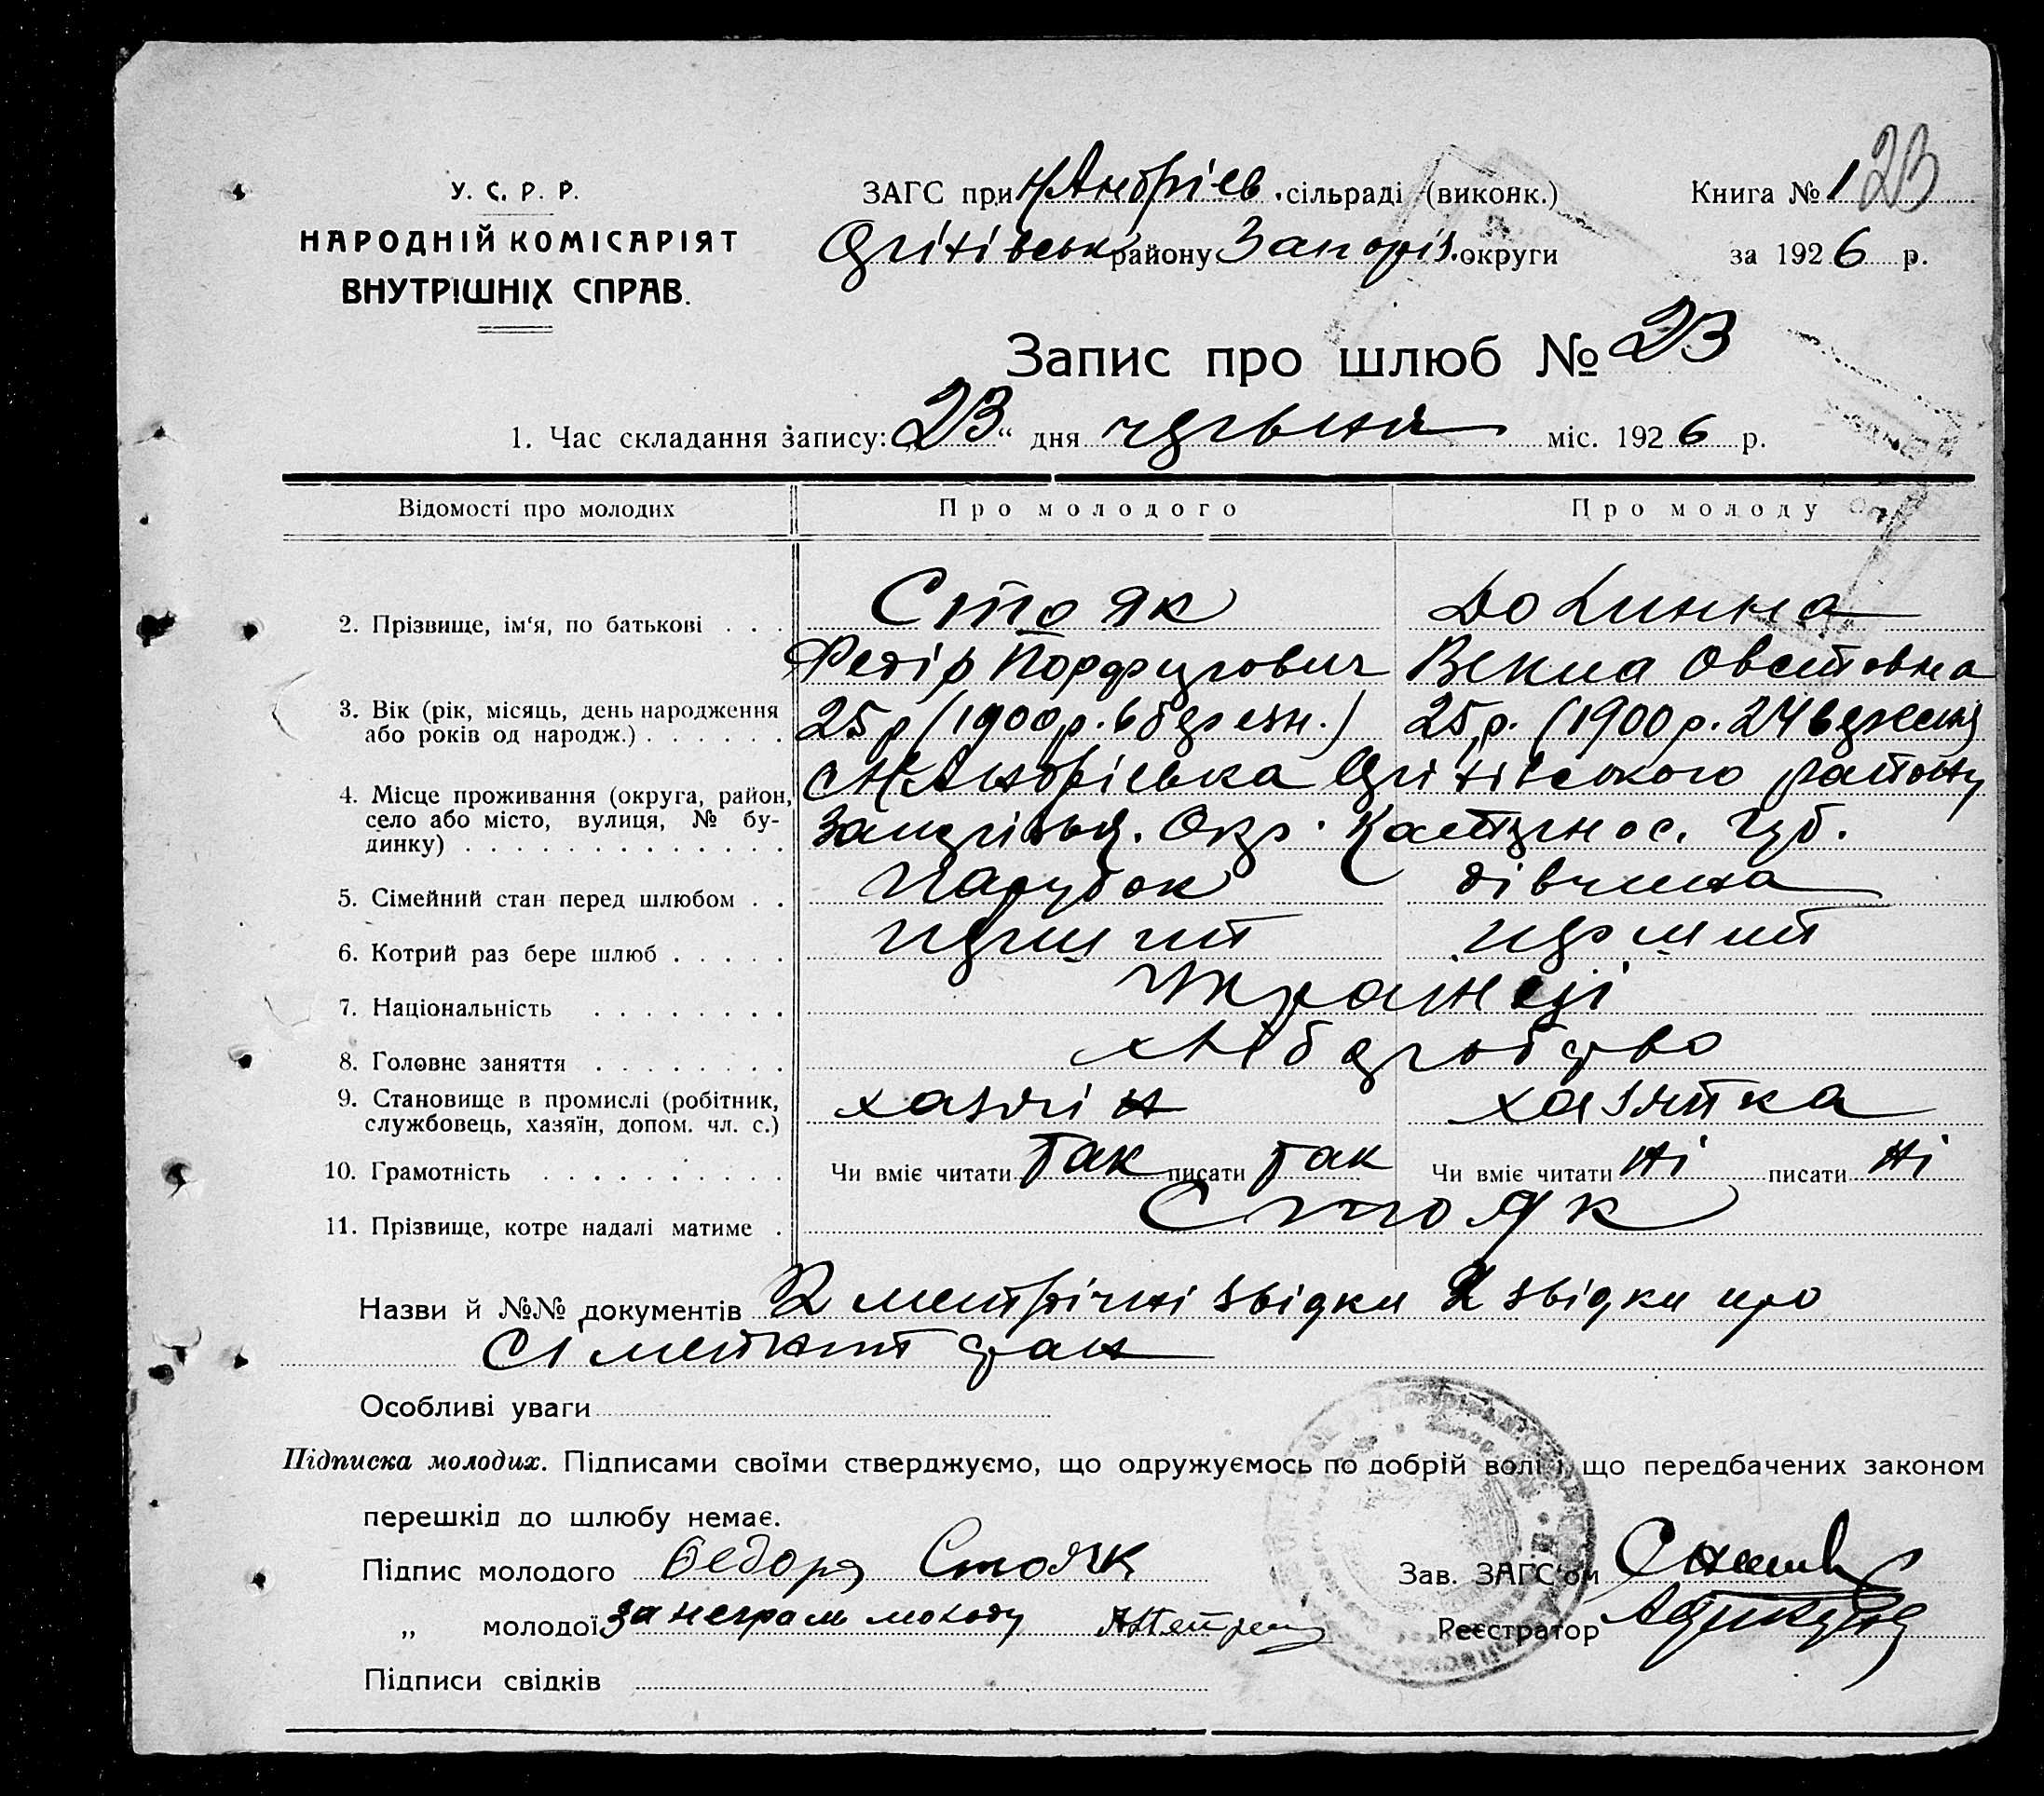 У. С. Р. Р.
НАРОДНІЙ КОМІСАРІЯТ
ВНУТРІШНІХ СПРАВ.
ЗАГС при Н/Андріев. сільраді (виконк.)
району Запоріз. округи
Книга № 1 23
за 1926 р.
Запис про шлюб № 23
1. Час складання запису: „23“ дня червня міс. 1926 р.
Відомості про молодих Про молодого Про молоду
2. Прізвище, ім'я, по батькові . . . Стояк
Федір Порфирович Векла Овстовна
3. Вік (рік, місяць, день народження 25 р (1900 р. 6 березн.) 25 р. (1900 р. 24 вересня)
або років од народж.) . . . . . .
4. Місце проживання (округа, район, с Н/Андріевка району
село або місто, вулиця, № бу- Окр. Катернос. Губ.
динку) . . . . . . . . . . . . .
5. Сімейний стан перед шлюбом . . Парубок дівчина
6. Котрий раз бере шлюб . . . . . перший перший
7. Національність . . . . . . . . Українці
8. Головне заняття . . . . . . . . хліборобство
9. Становище в промислі (робітник, хазяін хазяйка
службовець, хазяїн, допом. чл. с.)
10. Грамотність . . . . . . . . . . Чи вміє читати так писати так Чи вміє читати ні писати ні
11. Прізвище, котре надалі матиме . Стояк
Назви й №№ документів 2 метричні звідки 2 звідки про
сімейний стан
Особливі уваги
Підписка молодих. Підписами своїми стверджуємо, що одружуємось по добрій волі і що передбачених законом
перешкід до шлюбу немає.
Підпис молодого Федоръ Стояк Зав. ЗАГС'ом
„ молодої за неграм молоду Реєстратор
Підписи свідків